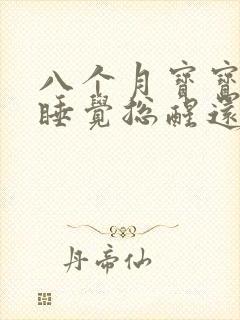 八个月寶寶
睡覺總醒還
丹帝仙